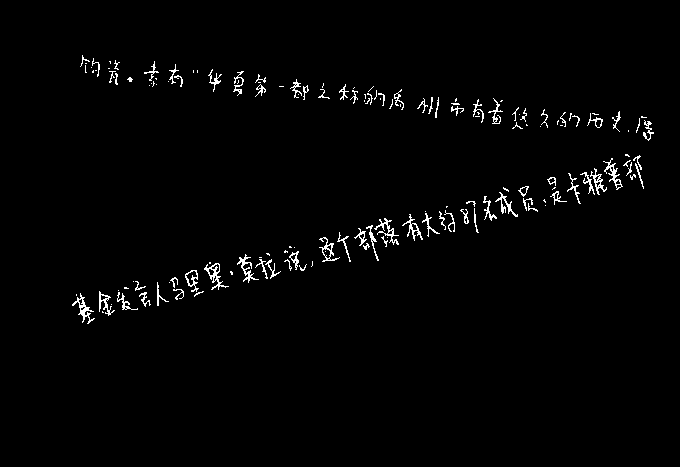 钧瓷。素有“华夏第一都之称的禹州市有着悠久的历史，厚
基金发言人马里奥·莫拉说，这个部落有大约87名成员，是卡雅普部